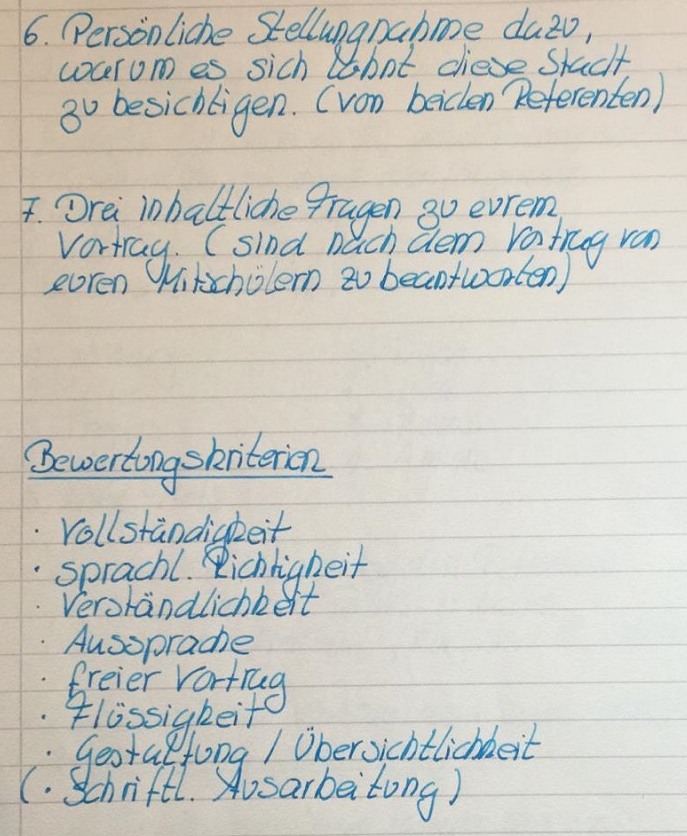 6. Persönliche Stellungnahme dazu,
warum es sich lohnt diese Stadt
zu besichtigen. (von beiden Referenten)
7. Drei inhaltliche Fragen zu eurem
Vortrag. (sind nach dem Vortrag von
euren Mitschülern zu beantworten)
Bewertungskriterien
· Vollständigkeit
· sprachl. Richtigkeit
· Verständlichkeit
· Aussprache
· freier Vortrag
· Flüssigkeit
· Gestaltung / Übersichtlichkeit
(· Schriftl. Ausarbeitung)